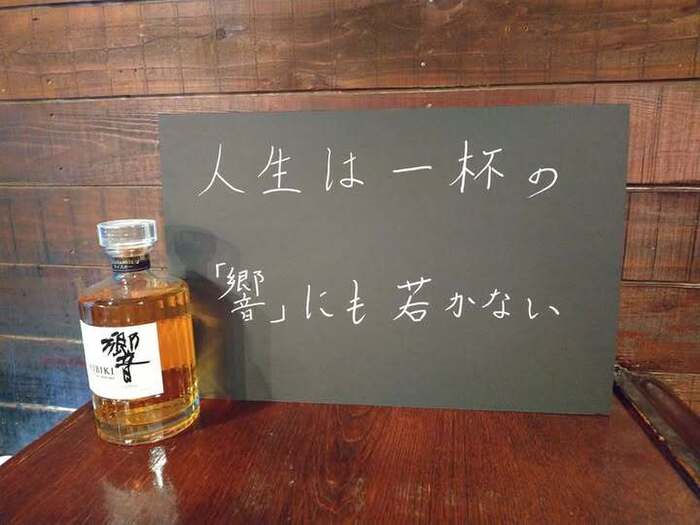 人生は一杯の
「響」にも若かない
響
HIBIKI